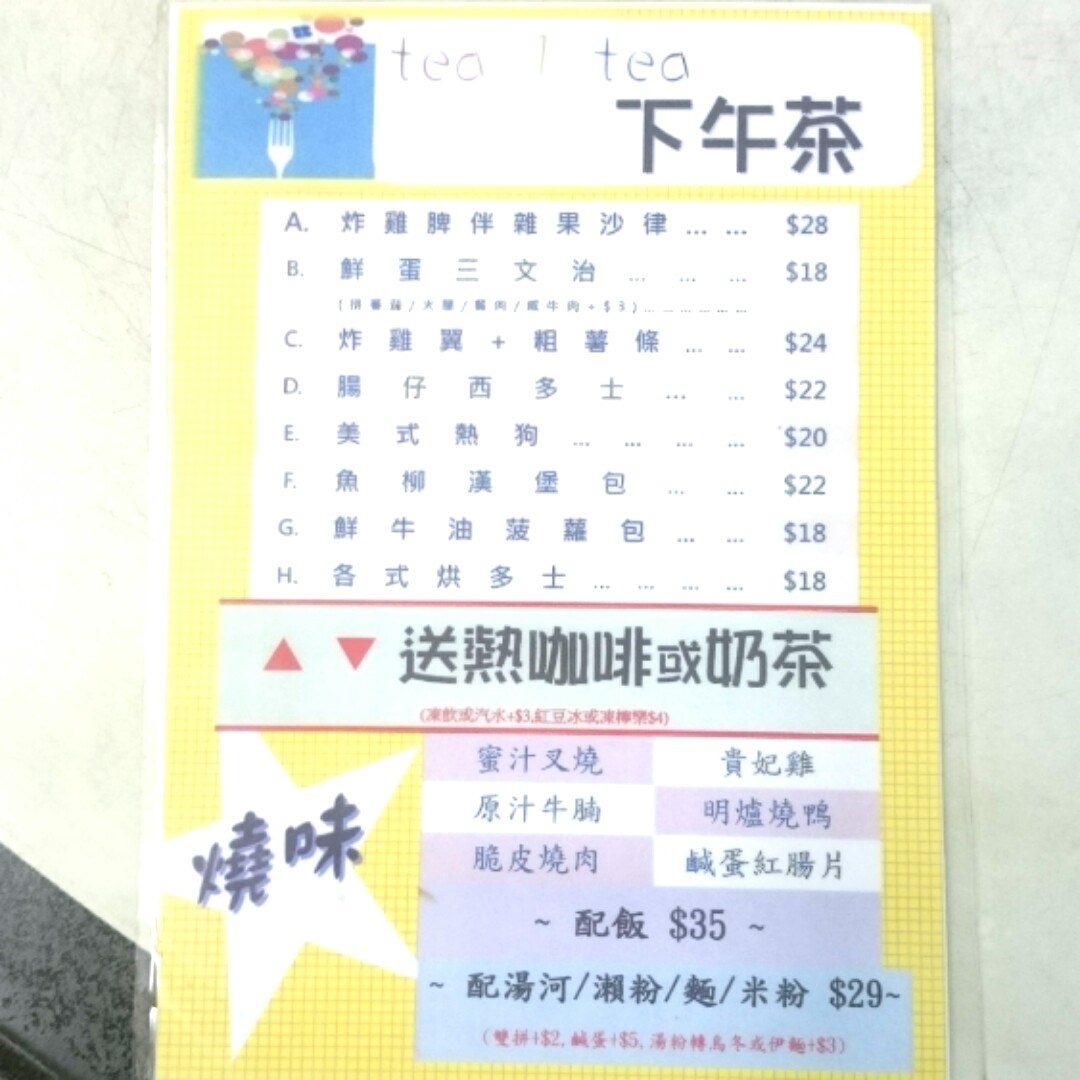 tea 1 tea
下午茶
A. 炸雞脾伴雜果沙律 ... ... $28
B. 鮮蛋三文治 ... ... ... $18
(拼蕃茄/火腿/餐肉/咸牛肉+$3)... ... ... ... ... ...
C. 炸雞翼+粗薯條 ... ... $24
D. 腸仔西多士 ... ... $22
E. 美式熱狗 ... ... ... ... $20
F. 魚柳漢堡包 ... ... $22
G. 鮮牛油菠蘿包 ... ... $18
H. 各式烘多士 ... ... ... ... $18
▲ ▼ 送熱咖啡或奶茶
(凍飲或汽水+$3,紅豆冰或凍檸樂$4)
燒味
蜜汁叉燒 貴妃雞
原汁牛腩 明爐燒鴨
脆皮燒肉 鹹蛋紅腸片
~ 配飯 $35 ~
~ 配湯河/瀨粉/麵/米粉 $29~
(雙拼+$2, 鹹蛋+$5, 湯粉轉烏冬或伊麵+$3)